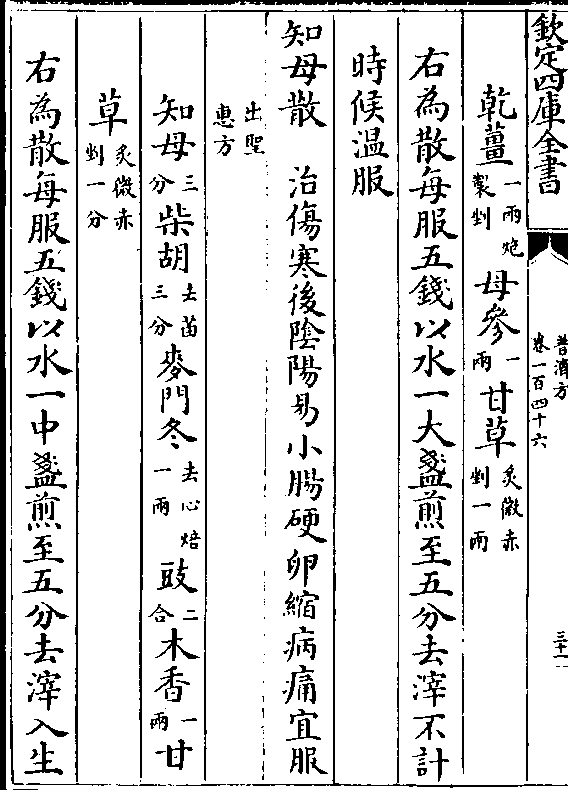 欽定四庫全書
普濟方
卷一百四十六
三十一
乾薑一兩炮製剉母參一兩甘草炙微赤剉一兩
右為散每服五錢以水一大盞煎至五分去滓不計
時候溫服
知母散治傷寒後陰陽易小腸硬卵縮病痛宜服
出聖惠方
知母三分柴胡去苗三分麥門冬去心焙一兩豉二合木香一兩甘
草炙微赤剉一分
右為散每服五錢以水一中盞煎至五分去滓入生